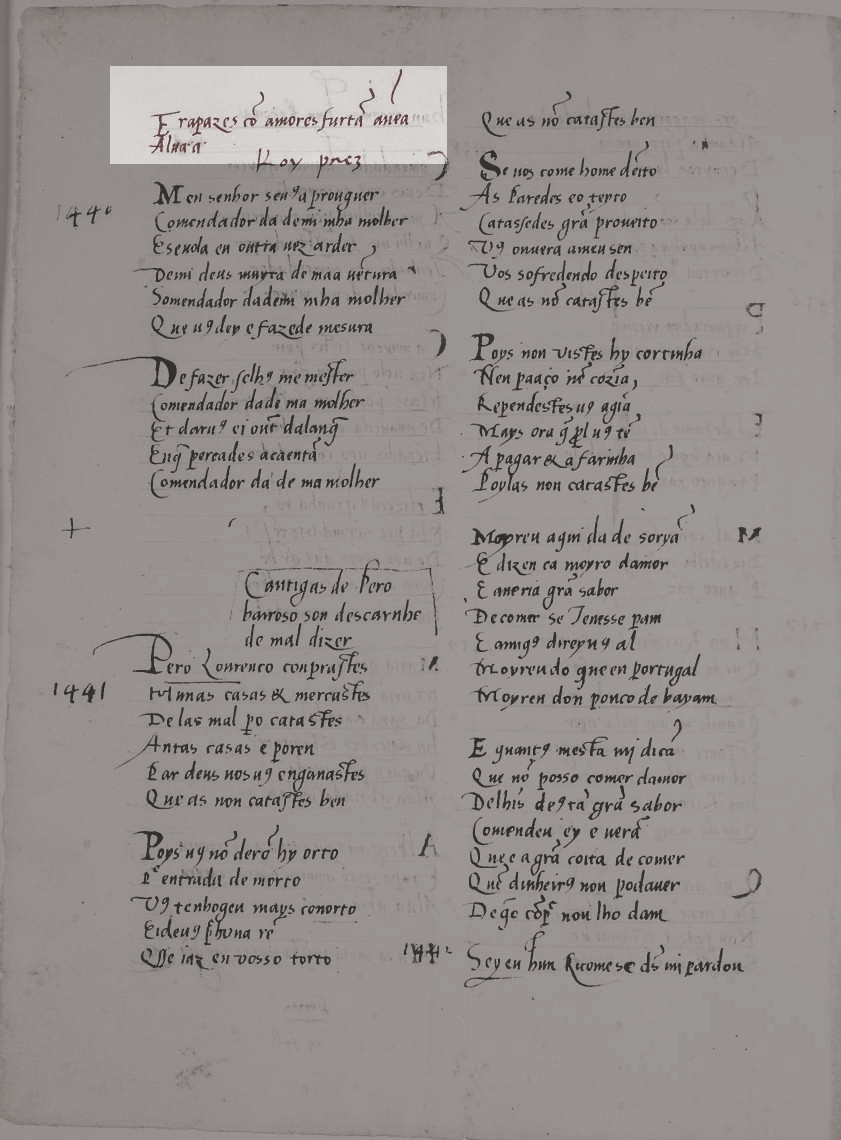 E rapazes cō amores furtā auea
Aluaā
Roy paez
1440
Meu senhor seu9a prouguer
Comendador da demi mha molher
E se uola en outra uez arder
Demi deus muyta de maa uētura
Comendador dademi mha molher
Que u9 dey e fazede mesura
De fazer
Comendador dade ma molher
Et daru9 ei out dalanq̄
En q̄ percades acaentā
Comendador da de ma molher
Cantigas de Pero
barroso son descarnhe
de mal dizer
1441
Pero Lourenco conprastes
Munas casas & mercastes
De las mal po catastes
Antas casas e poren
Par deus uos u9 enganastes
Que as non catastes ben
Poys u9 nō derō hy orto
entrada de morto
V9 tenhogeu mays conorto
Eideu9 hūna re
Q̄sse iaz en vosso torto
Que as nō catastes ben
Se uos come home deito
As Paredes eo teyto
Catassedes grā proueito
V9 ouuera ameu sen
Vos sofredendo despeito
Que as nō catastes bē
Poys non vistes hy cortinha
Nen paaço nē cozīa
Rependestesu9 agīa
Mays ora q̄ pl u9 tē
A pagar & a farinha
Poylas non catastes bē
Moyreu aqui da de soryā
E dizen ca moyro damor
E aueria grā sabor
De comer se Tenesse pam
E amig9 direyu9 al
Moyreu do que en portugal
Moyreu don ponco de bayam
E quant9 mesta mi dicā
Que nō posso comer damor
Delhis de9 tā grā sabor
Comendeu ey e uerā
Que e a grā coita de comer
Quē dinheir9 non podauer
De q̄ cōpr nou lho dam
1442
Sey eu hun Ricome se d̄s mi pardon